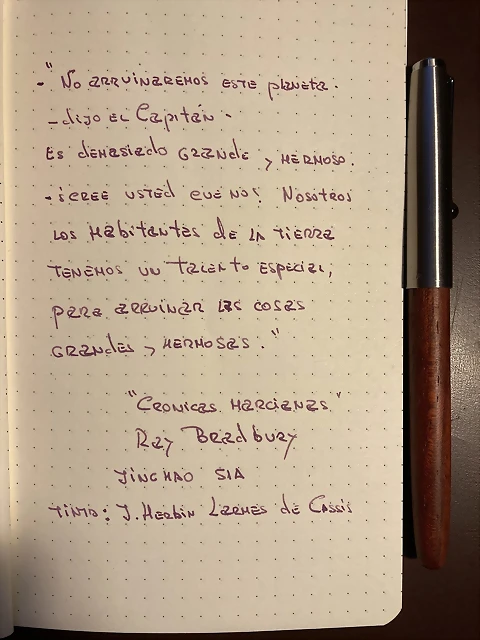 -"No arruinaremos este planeta.
-dijo el Capitán.
Es demasiado grande y hermoso.
-¿Cree usted que no? Nosotros
los habitantes de la tierra
tenemos un talento especial,
para arruinar las cosas
grandes y hermosas."
"Cronicas Marcianas"
Ray Bradbury
JINCHAO SIA
Tinta: J. Herbin Larmes de Cassis